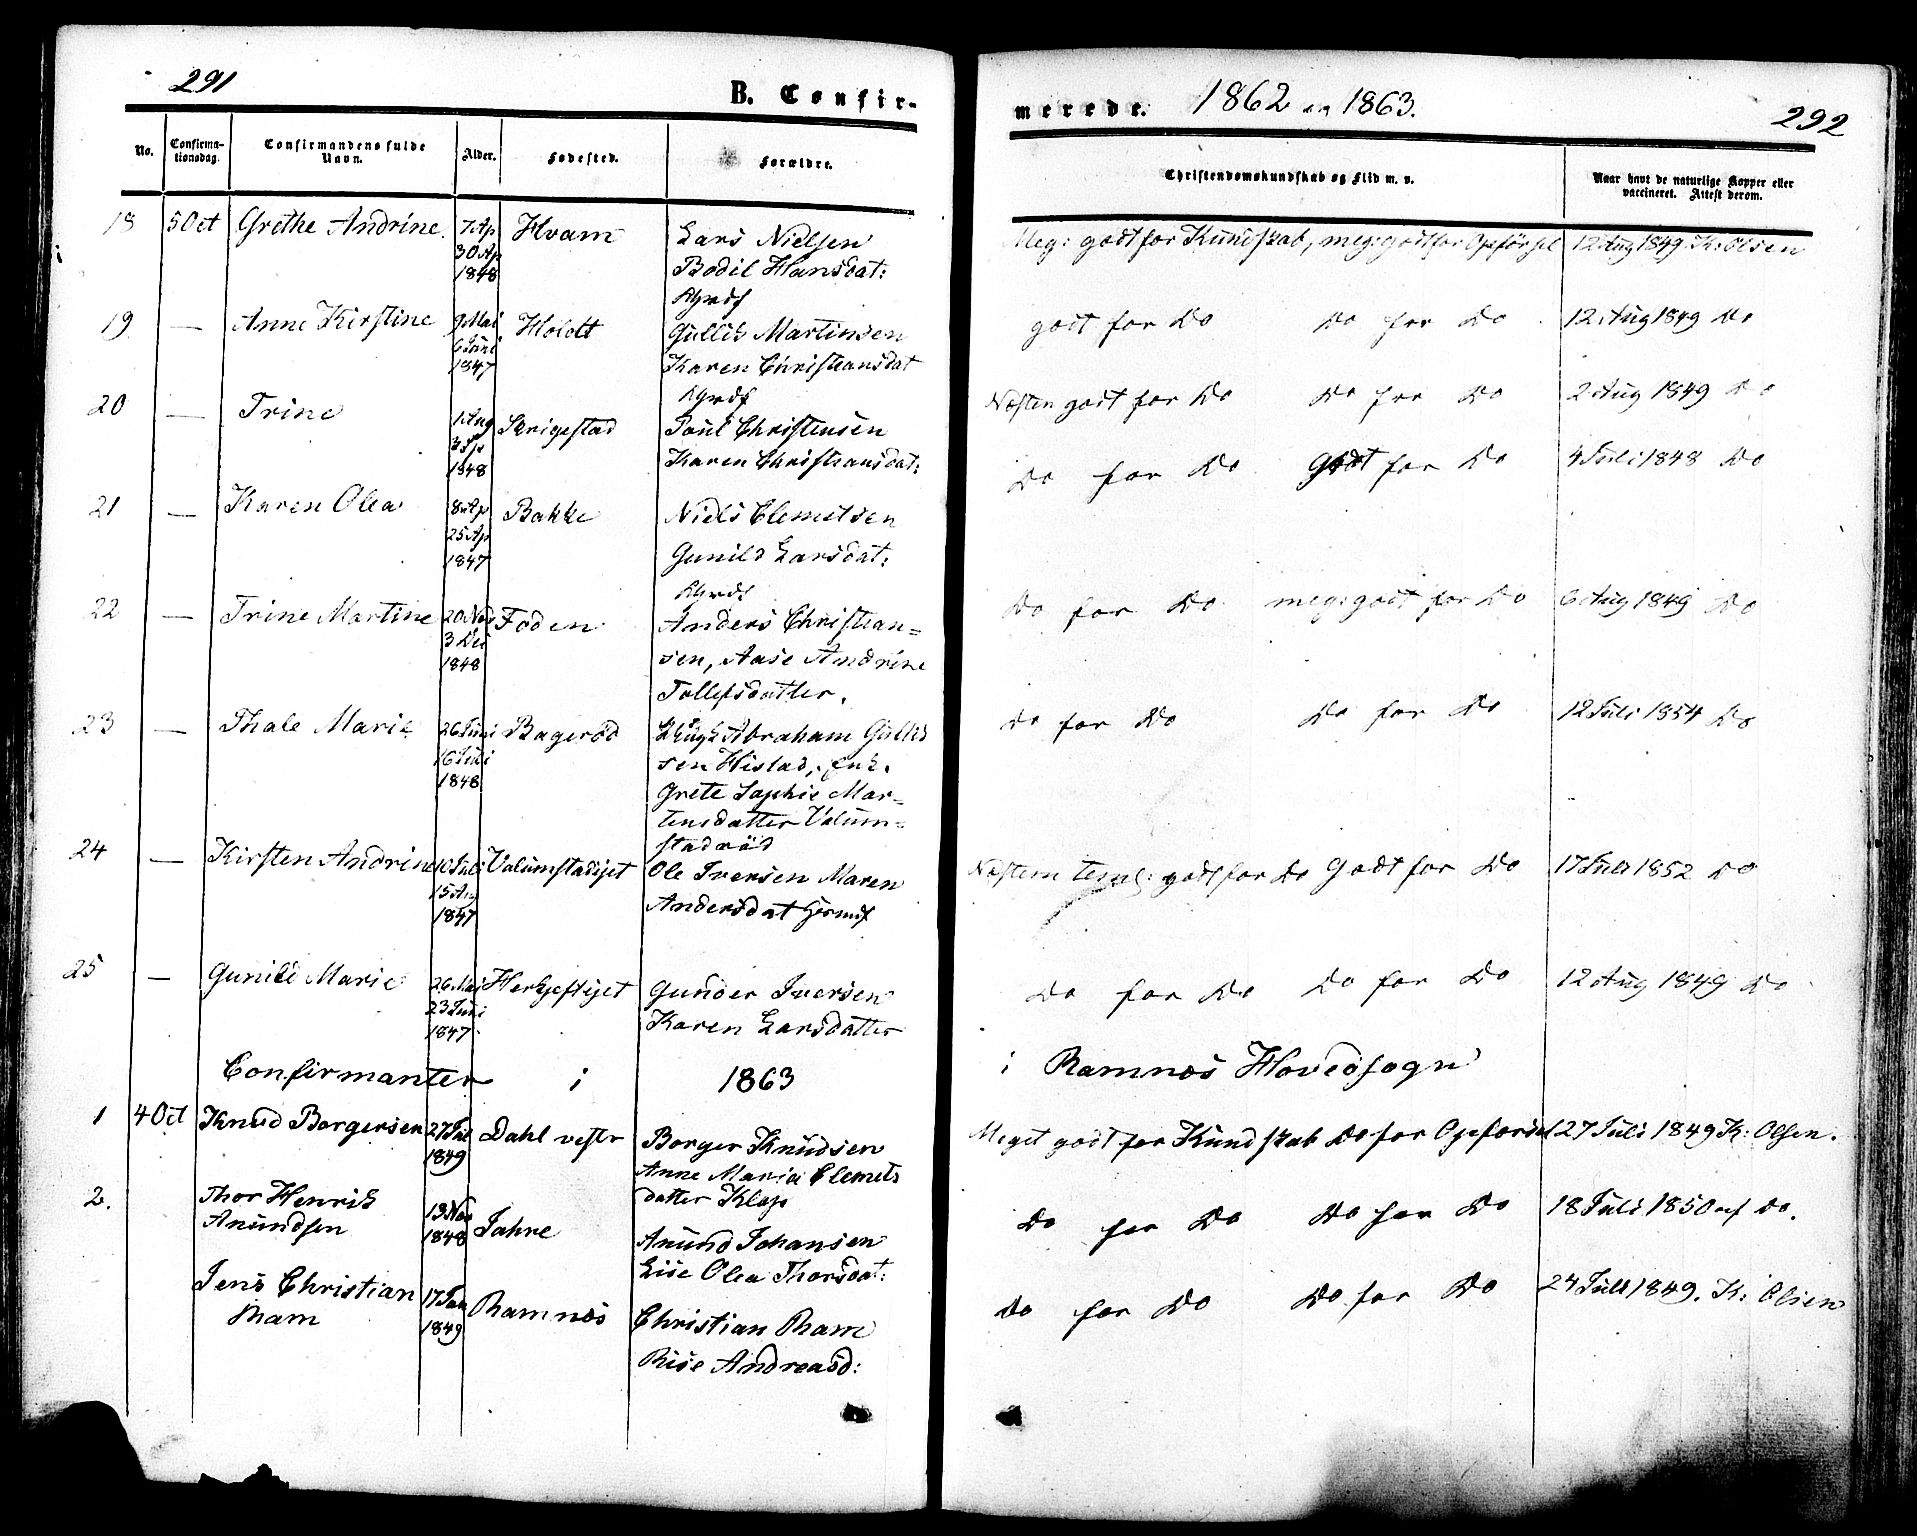 291
B. Confir-
No. Confirma-tionsdag. Confirmandens fulde Navn. Alder. Fødested. Forældre.
18 5 Oct Grethe Andrine 7 Ap Hvam Lars Nielsen
30 Ap
1848 Bodil Hansdat:
19 — Anne Kirstine 9 Mai Holdt Gullik Martinsen
6 Juni
1847 Karen Christiansdat
20 — Trine 1 Aug Skrigestad Poul Christensen
1848 Karen Christiansdat:
21 — Karen Olea 8 Ap Bakke Niels Clemetsen
25 Ap
1847 Gunild Larsdat:
22 — Trine Martine 20 Nov Foden Anders Christian=
3 Dec sen, Aase Andrine
1848 Tollefsdatter.
23 — Thale Marie 26 Juni Bagerød Abraham Gullid
16 Juli sen Histad,
1848 Grete Sophie Mar=
tensdatter Valum=
stadrød
24 — Kirsten Andrine 10 Juli Valumstadejet Ole Iversen Maren
15 Au
1847 Andersdat
25 — Gunild Marie 26 Mai Herkjestejet Gunder Iversen
23 Juni
1847 Karen Larsdatter
Confirmanter i 1863
1 4 Oct Knud Borgersen 27 Jul Dahl vestr Borger Knudsen
1849 Anne Maria Clemets
datter Klop
2. Thor Henrik 13 Nov Jahre Anund Johansen
Anundsen 1848 Lise Olea Thorsdat:
Jens Christian 17 Jan Ramnæs Christian Ram
Ram 1849 Rise Andreasd:
merede. 1862 og 1863.
292
Christendomskundskab og Flid m. v. Naar havt de naturlige Kopper eller vaccineret. Attest derom.
Meg: godt for Kundskab, meg: godt for Opførsel 12 Aug 1849 K: Olsen
godt for Do Do for Do 12 Aug 1849 Do
Næsten godt for Do Do for Do 2 Aug 1849 Do
Do for Do Godt for Do 4 Juli 1848 Do
Do for Do meg: godt for Do 6 Aug 1849 Do
Do for Do Do for Do 12 Juli 1854 Do
Næsten godt for Do Godt for Do 17 Juli 1852 Do
Do for Do Do for Do 12 Aug 1849 Do
i Ramnæs Hovedsogn
Meget godt for Kundskab Do for Opførsel 27 Juli 1849 K: Olsen.
Do for Do Do for Do 18 Juli 1850 af Do.
Do for Do Do for Do 24 Juli 1849. K: Olsen